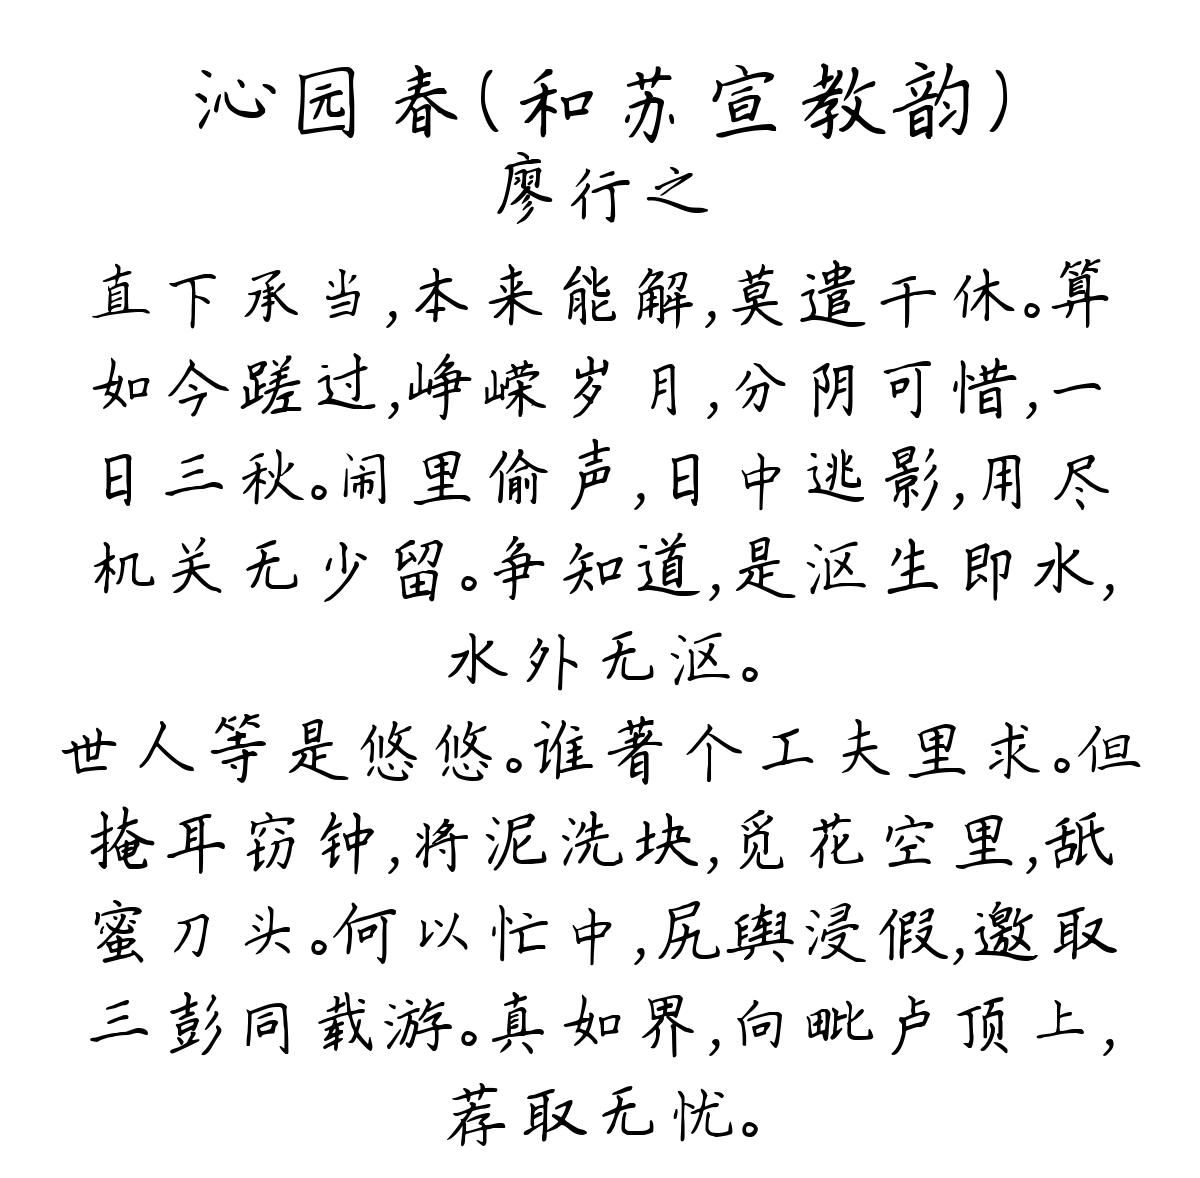 沁园春(和苏宣教韵)
廖行之
直下承当,本来能解,莫遣干休。算
如今蹉过,峥嵘岁月,分阴可惜,一
日三秋。闹里偷声,日中逃影,用尽
机关无少留。争知道,是沤生即水,
水外无沤。
世人等是悠悠。谁著个工夫里求。但
掩耳窃钟,将泥洗块,觅花空里,舐
蜜刀头。何以忙中,尻舆浸假,邀取
三彭同载游。真如界,向毗卢顶上,
荐取无忧。